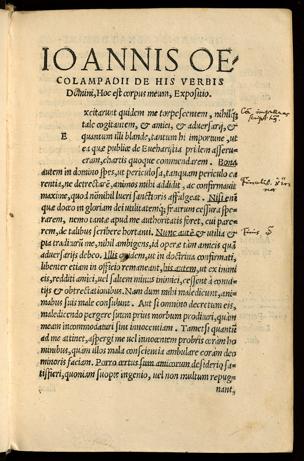 IOANNIS OE-
COLAMPADII DE HIS VERBIS
Domini, Hoc est corpus meum, Expositio.
Excitarunt quidem me torpescentem, nihilq;
tale cogitantem, & amici, & aduersarij, &
quantum illi blande, tantum hi importune, ut
ea quæ publice de Eucharistia pridem asserue-
ram, chartis quoque commendarem. Bona
autem in domino spes, ut periculosa, tanquam periculo ca
rentia, ne detrectarē, animos mihi addidit, ac confirmauit
maxime, quod nōnihil lucri sanctoris affulgeat. Nisi eni
quæ deo in gloriam dei utilitatemq; fratrum cessura spe-
rarem, nemo tantæ apud me authoritatis foret, cui pare-
rem, de talibus scribere hortanti. Nunc autē & utilia &
pia traditurū me, nihil ambigens, id operæ tum amicis quā
aduersarijs debeo. Illis quidem, ut in doctrina confirmati,
libenter etiam in officio remaneant, his autem, ut ex inimi
cis, redditi amici, uel saltem minus inimici, cessent à conui-
tijs & obtrectationibus. Nam dum mihi maledicunt, ani-
mabus suis male consulunt. Aut si omnino decretum eis,
maledicendo pergere suum prius morbum prodituri, quàm
meam incommodaturi sint innocentiam. Tametsi quantū
ad me attinet, aspergi me uel innocentem probris corām ho
minibus, quàm ullos mala conscientia ambulare coram deo
minoris faciam. Porro ærtus sum amicorum desiderio sa-
tisfieri, quoniam suopte ingenio, uel non multum repug-
nant,